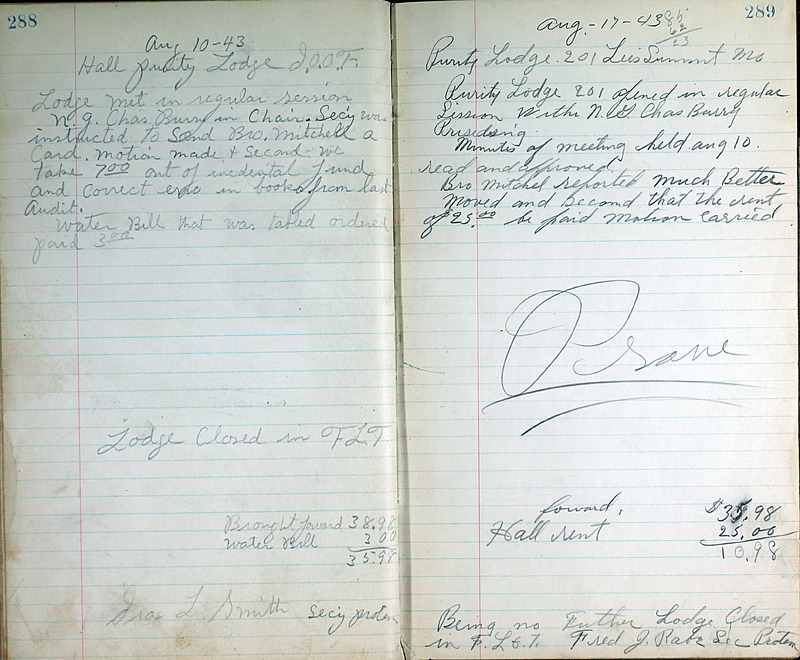 288
Aug 10-43
Hall purity Lodge I.O.O.F.
Lodge met in regular session
N.G. Chas Burry in Chair. Secy was
instructed to Send Bro. Mitchell a
Card. motion made + Second we
take 7.00 out of incedental fund
and correct in books from last
audit.
Water Bill that was tabled ordered
paid 3.00
Lodge Closed in F.L.T
Brought forward 38.98
Water Bill 3 00
35.98
Ira L. Smith Secy protem
289
Aug.-17-43
85
62
23
Purity Lodge. 201 Leis Summit Mo
Purity Lodge 201 opened in regular
Session With N.G Chas Burry
Presiding.
Minutes of meeting held aug 10.
read and approved
Bro Mitchel reported much Better
Moved and Second that the rent
of 25.00 be paid Motion carried
forward, $35.98
Hall rent 25.00
10.98
Being no Futher Lodge Closed
in F. L & T. Fred J. Sec Protem